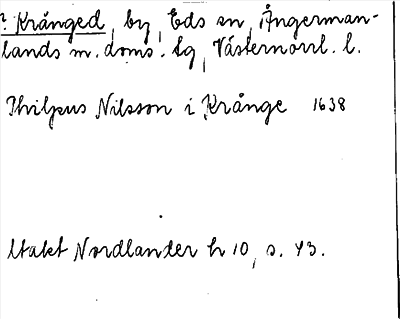 ? Krånged, by, Eds sn, Ångerman-
lands m. doms. lg, Västernorrl. l.
Philpus Nilsson i Krånge 1638
Utakt Nordlander h 10, s. 43.